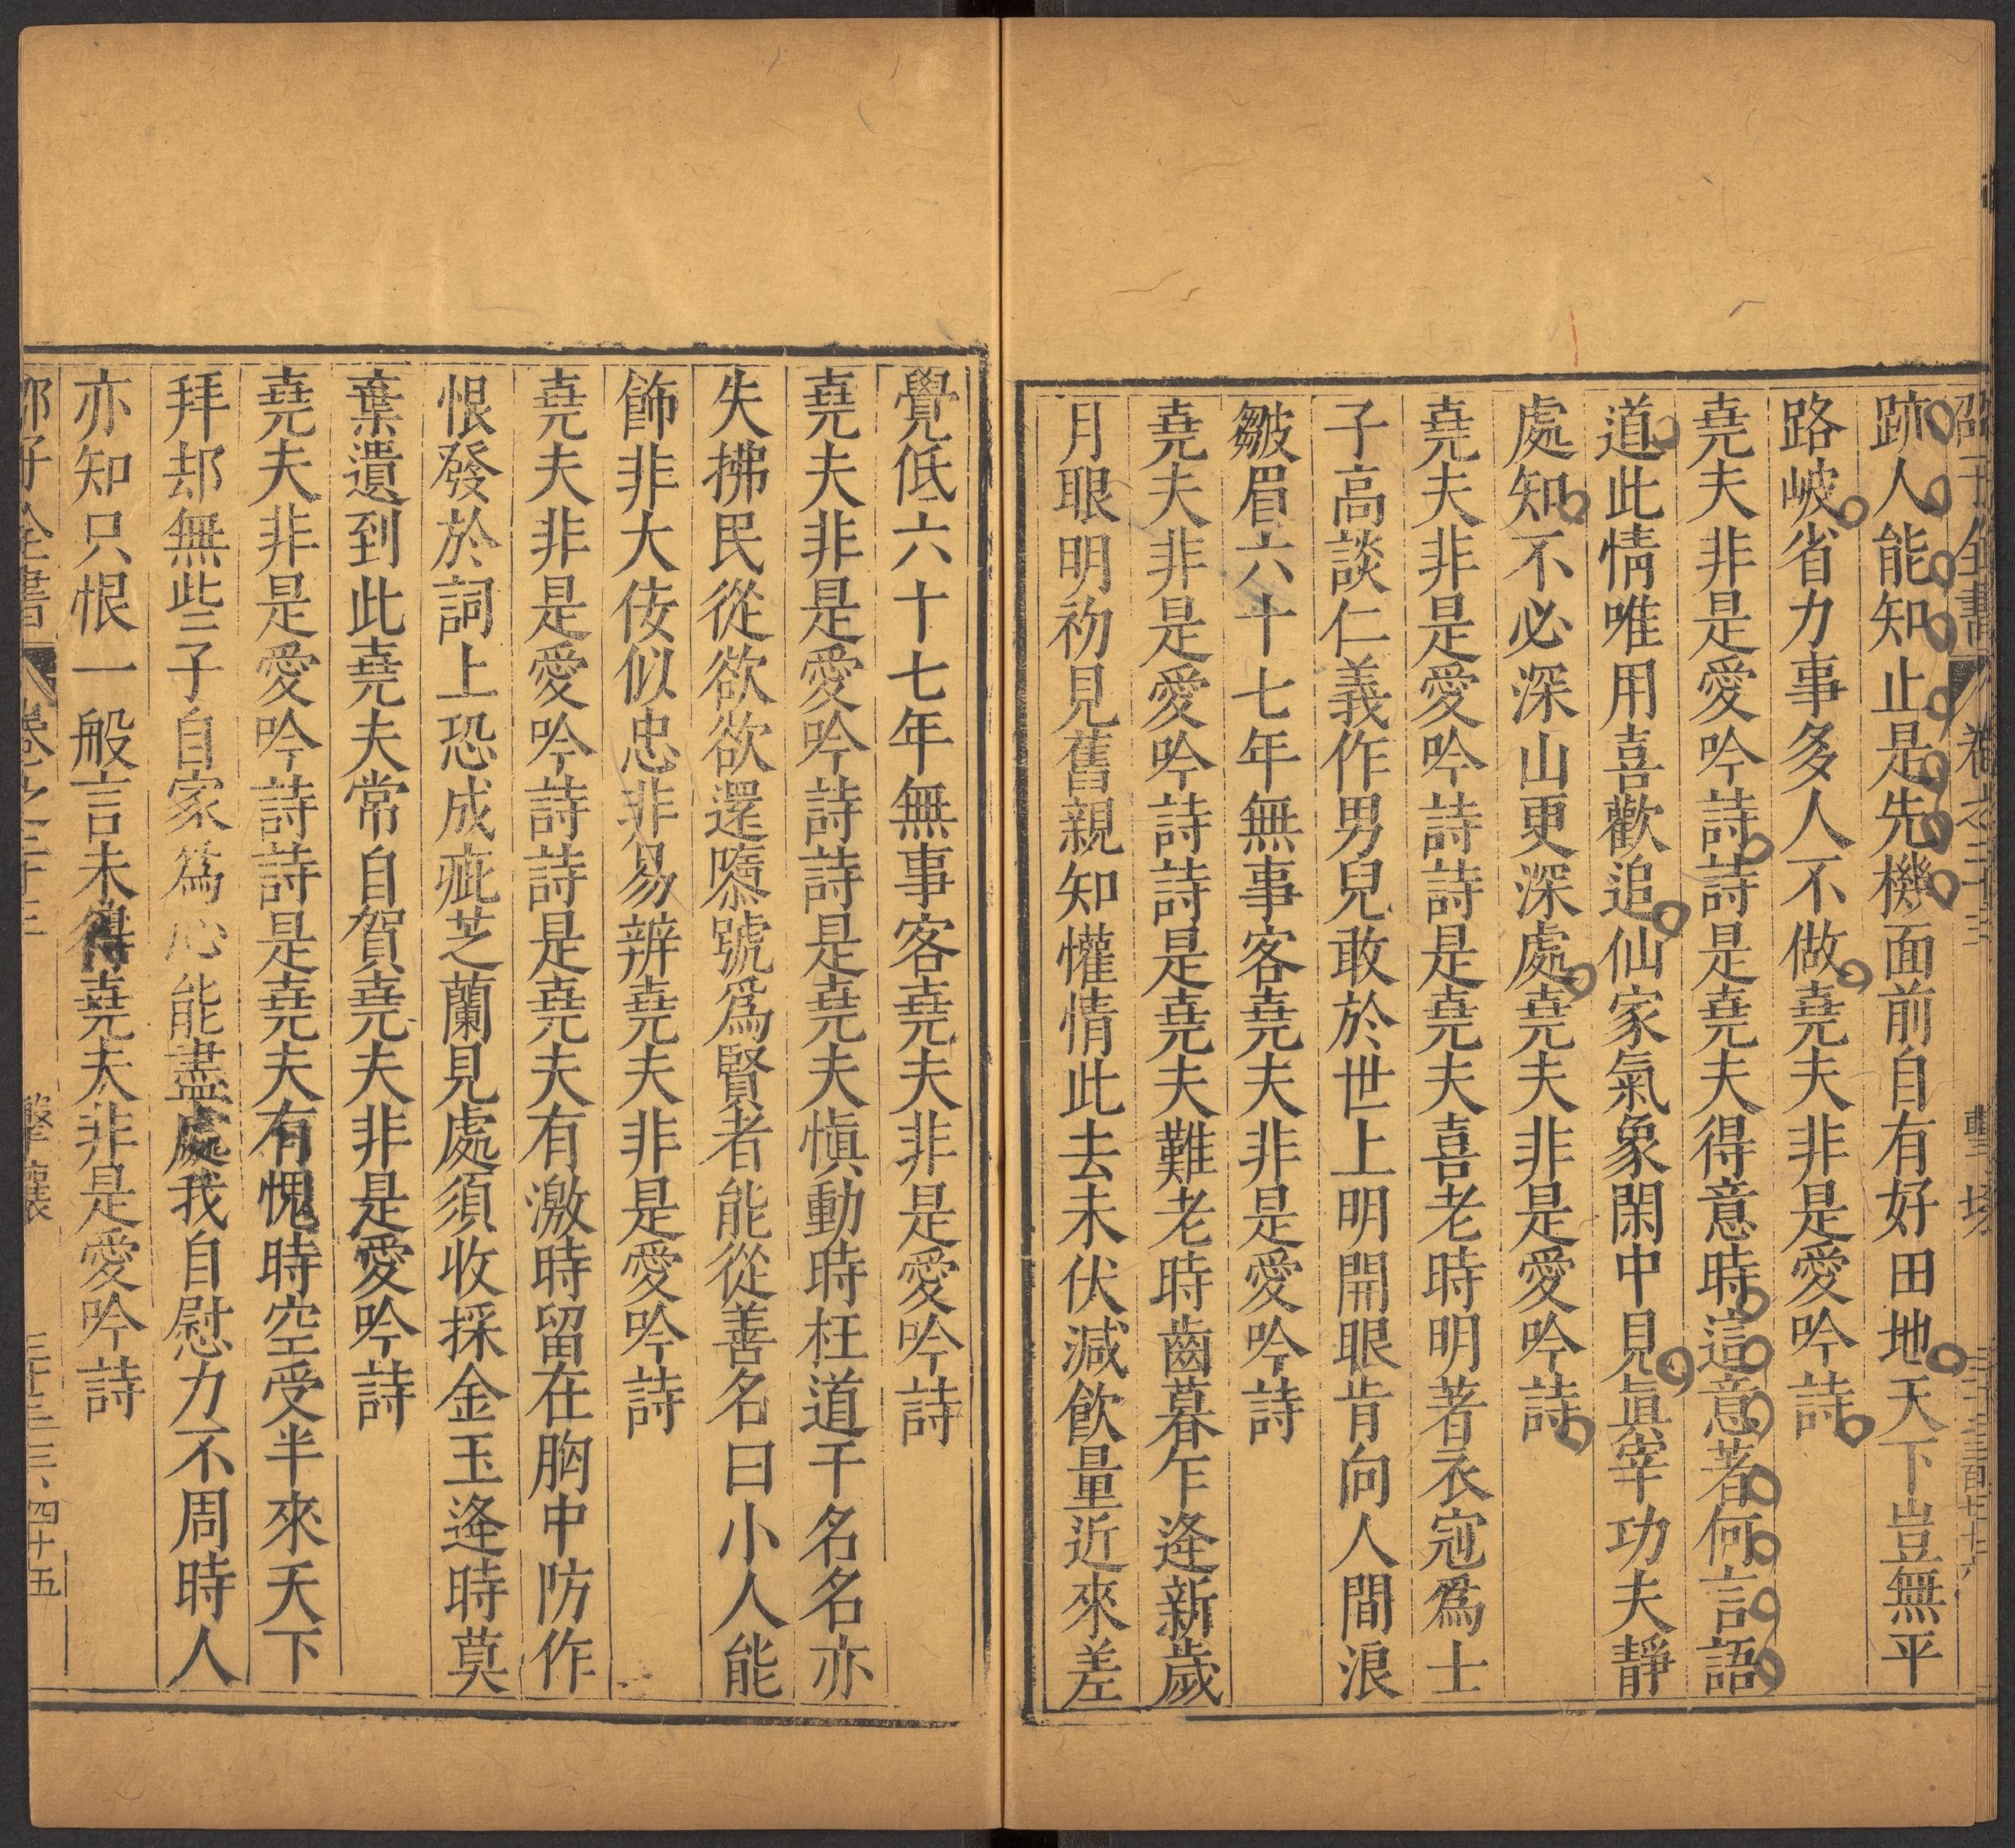 跡人能知止是先機面前自有好田地天下豈無平
路岥省力事多人不做堯夫非是愛吟詩
堯夫非是愛吟詩詩是堯夫得意時這意著何言語
道此情唯用喜歡追仙家氣象閑中見眞宰功夫靜
處知不必深山更深處堯夫非是愛吟詩
堯夫非是愛吟詩詩是堯夫喜老時明著衣冠爲士
子高談仁義作男兒敢於世上明開眼肯向人間浪
皺眉六十七年無事客堯夫非是愛吟詩
堯夫非是愛吟詩詩是堯夫難老時齒暮乍逢新歲
月眼明初見舊親知懽情此去未伏減飲量近來差
覺低六十七年無事客堯夫非是愛吟詩
堯夫非是愛吟詩詩是堯夫愼動時枉道干名名亦
失拂民從欲欲還隳號爲賢者能從善名曰小人能
飾非大佞似忠非易辨堯夫非是愛吟詩
堯夫非是愛吟詩詩是堯夫有激時留在胸中防作
恨發於詞上恐成疵芝蘭見處須收採金玉逢時莫
棄遺到此堯夫常自賀堯夫非是愛吟詩
堯夫非是愛吟詩詩是堯夫有愧時空受半來天下
拜却無些子自家爲心能盡處我自慰力不周時人
亦知只恨一般言未得堯夫非是愛吟詩
卷之二十三 擊壤 四十五